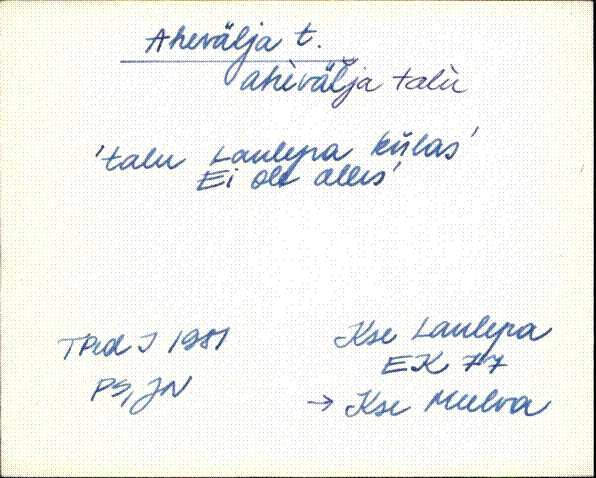 Ahevälja t.
ahèvälja talù
'talu Laulepa külas'
Ei ole alles'
TPed I 1981
PS, JN
Kse Laulepa
EK 77
→ Kse Mulva